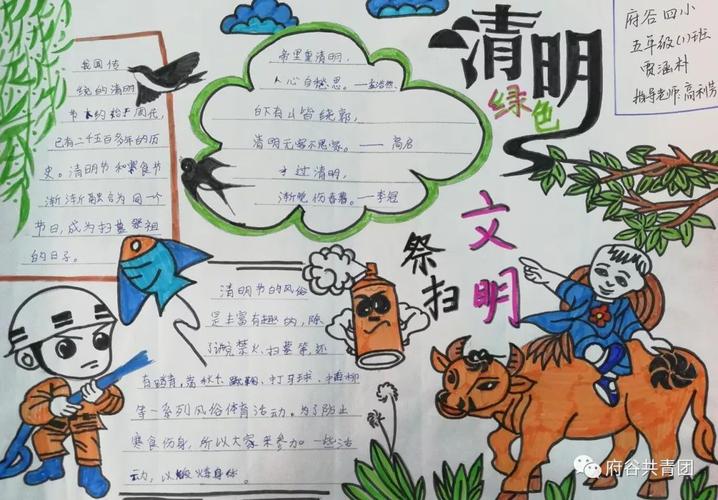 清明
绿色
文明
祭扫
府谷四小
五年级(1)班
贾涵朴
指导老师:高利芳
我国传
统的清明
节大约始于周代,
已有二千五百多年的历
史。清明节和寒食节
渐渐融合为同一个
节日,成为扫墓祭祖
的日子。
帝里重清明,
人心自愁思。——孟浩然
白下有山皆绕郭,
清明无客不思家。——高启
才过清明,
渐觉伤春暮。——李冠
清明节的风俗
是丰富有趣的,除
了讲究禁火、扫墓等,还
有踏青、荡秋千、蹴鞠、打马球、插柳
等一系列风俗体育活动。为了防止
寒食伤身,所以大家来参加一些活
动,以锻炼身体。
府谷共青团